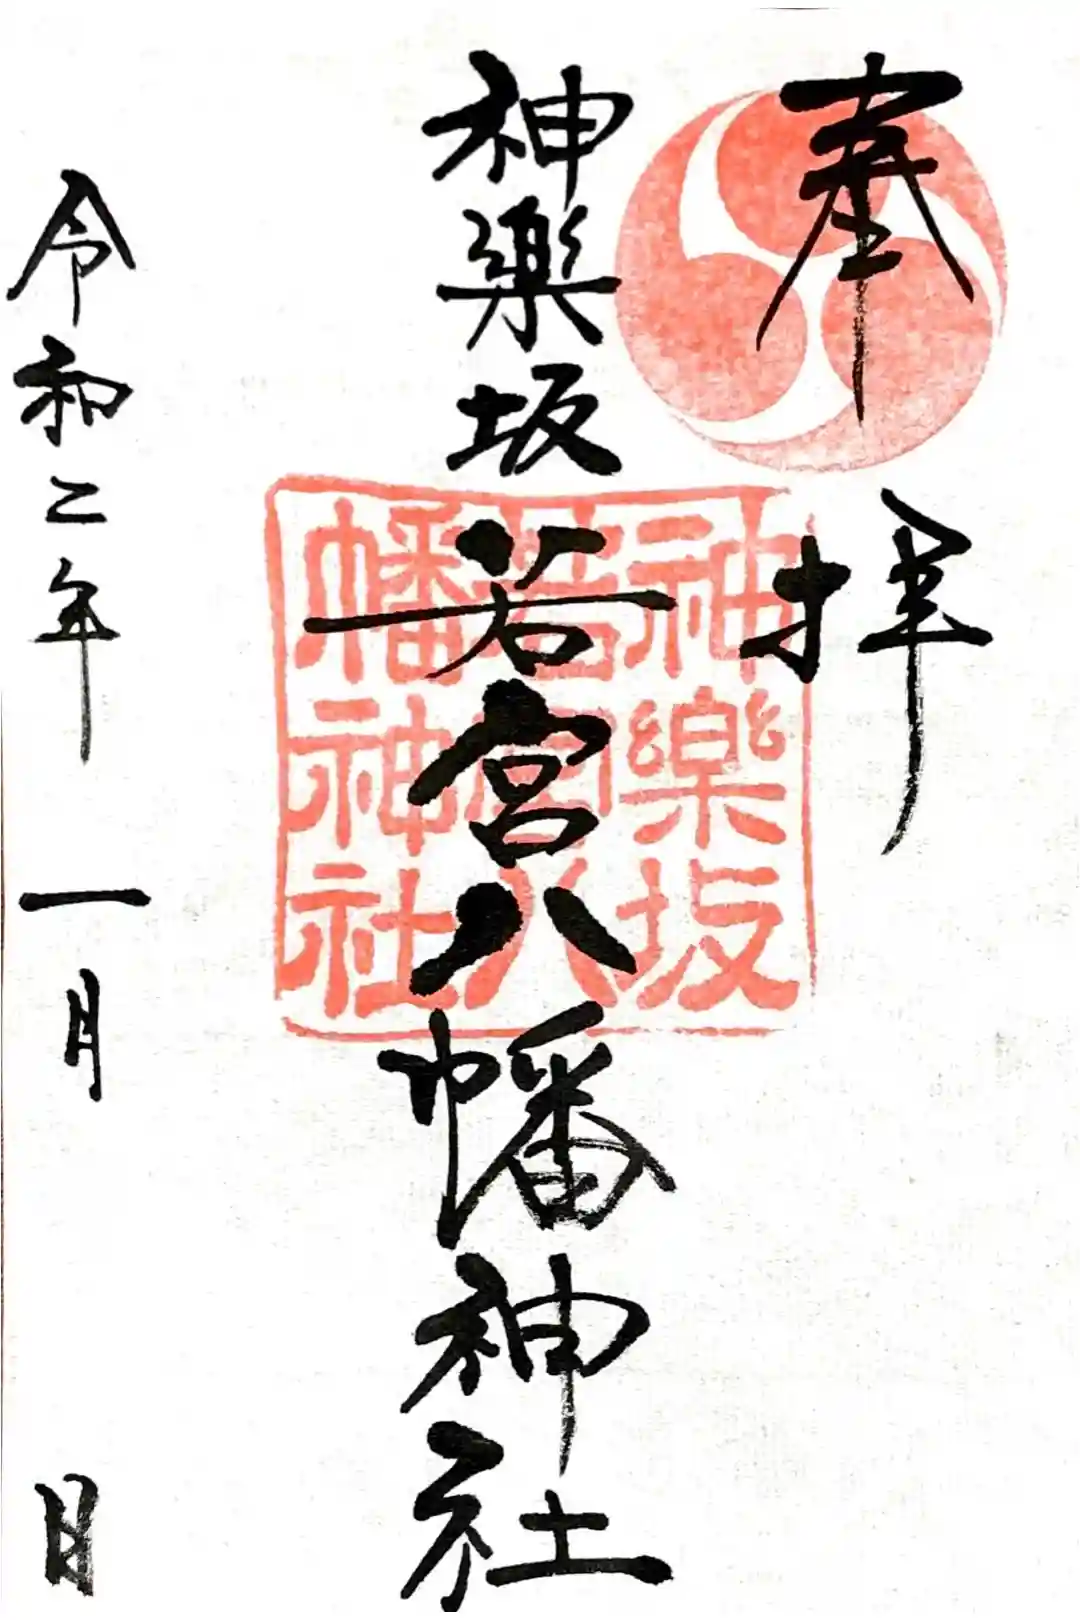 奉拝
神樂坂若宮八幡神社
神樂坂
若宮八
幡神社
令和二年一月 日